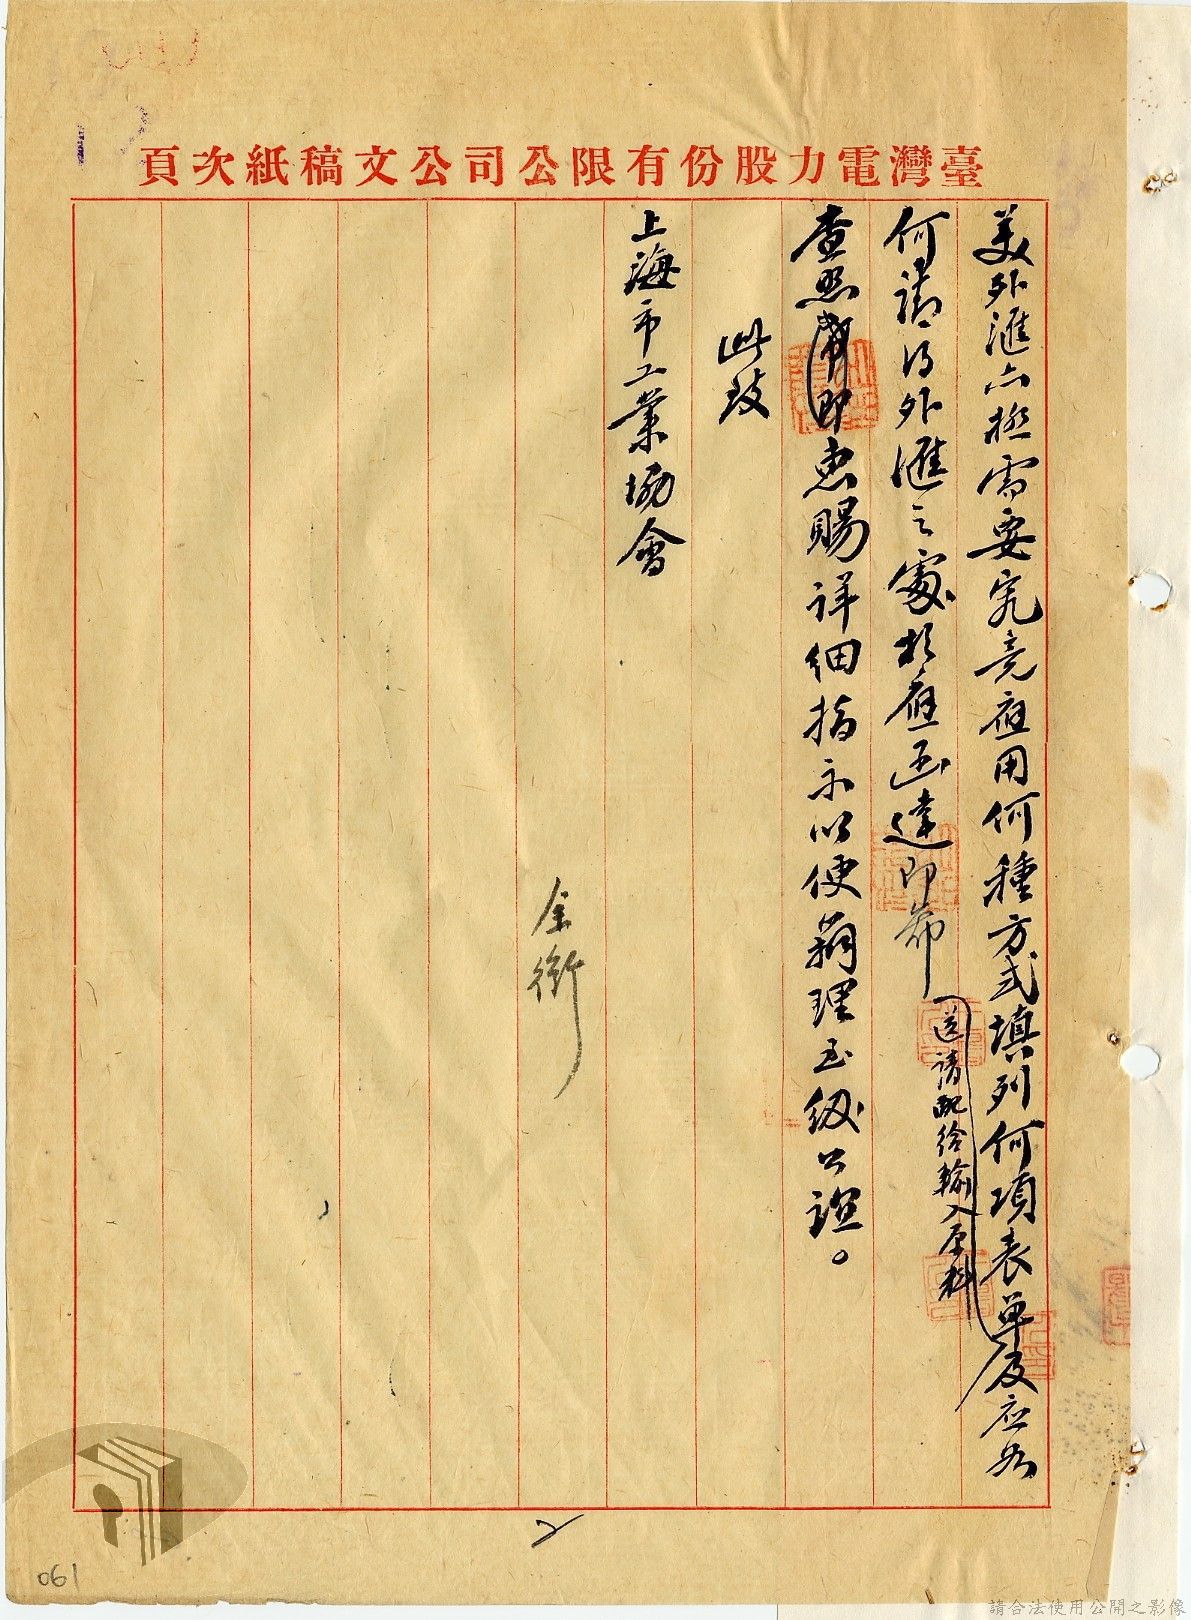 臺灣電力股份有限公司公文稿紙次頁
美外滙亦極需要究竟應用何種方式填列何項表單
送請配給輸入原料
及应如
何請得外滙之處相應函達即希
查照即惠賜詳細指示以便辦理至級公誼。
此致
上海市工業協會
全銜
2
061
請合法使用公開之影像